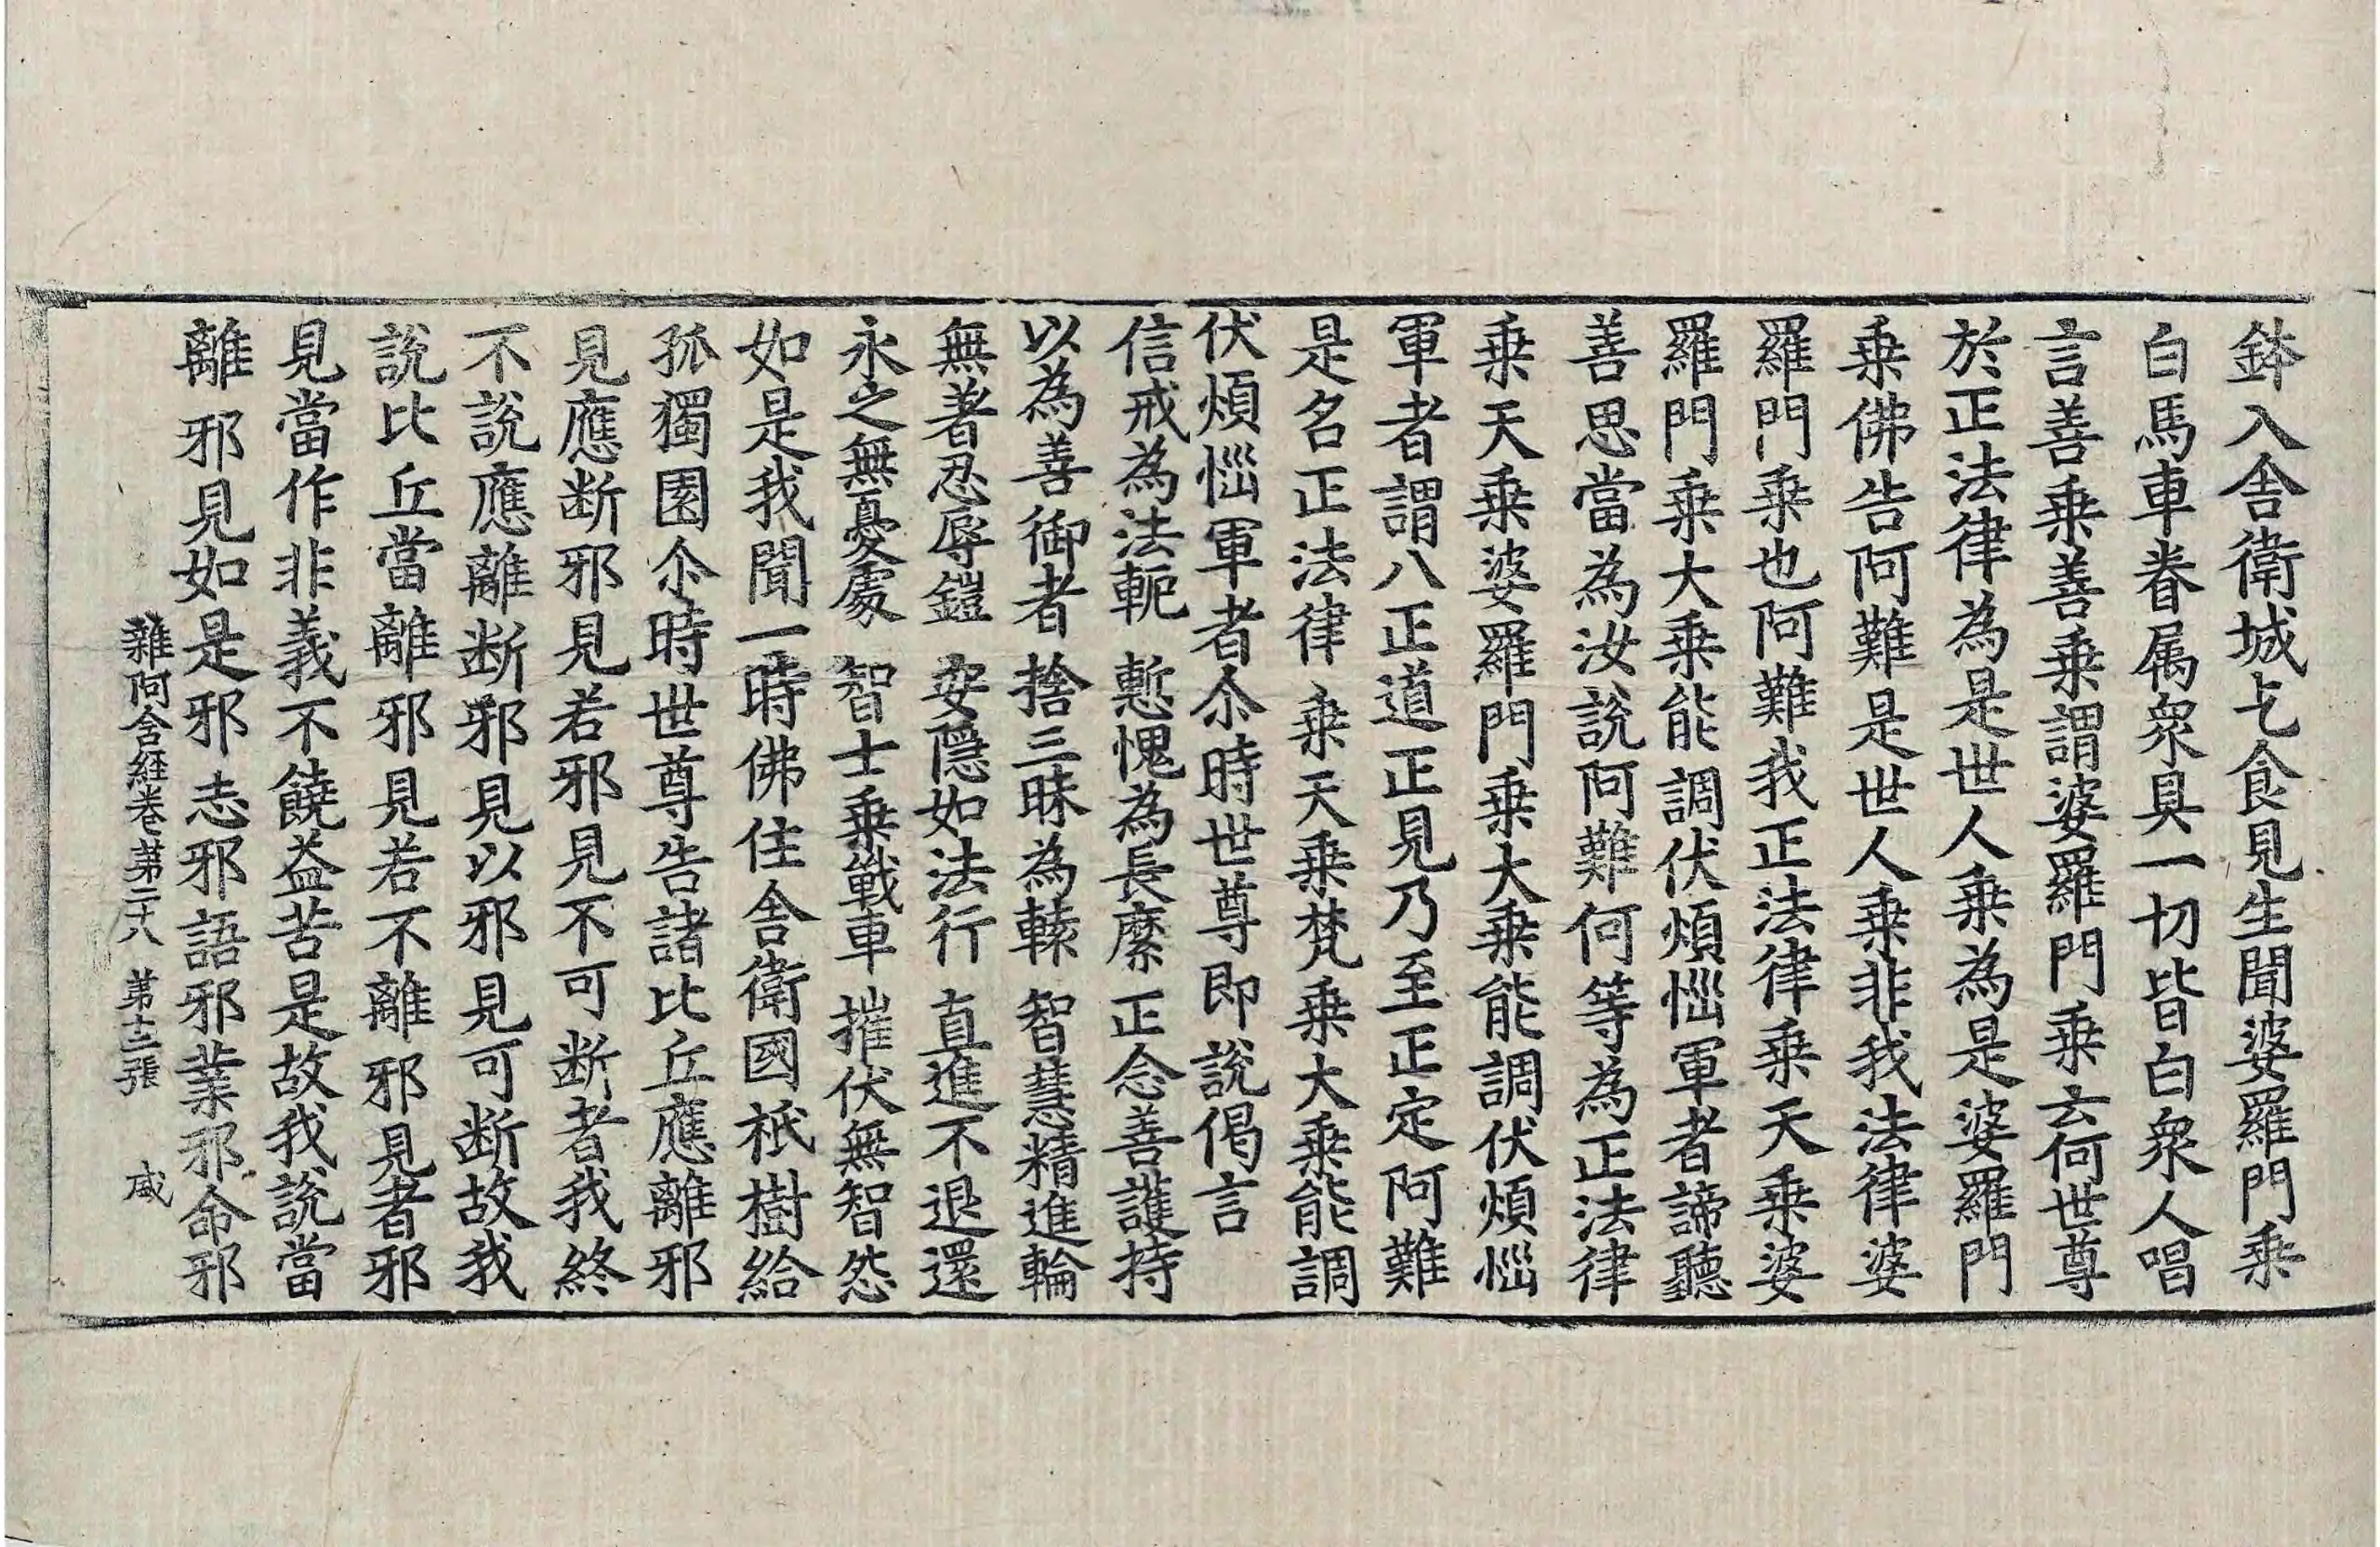 鉢入舎衛城乞食見生聞婆羅門乗
白馬車眷属衆具一切皆白衆人唱
言善乗善乗謂婆羅門乗云何世尊
於正法律為是世人乗為是婆羅門
乗佛告阿難是世人乗非我法律婆
羅門乗也阿難我正法律乗天乗婆
羅門乗大乗能調伏煩惱軍者諦聽
善思當為汝說阿難何等為正法律
乗天乗婆羅門乗大乗能調伏煩惱
軍者謂八正道正見乃至正定阿難
是名正法律乗天乗梵乗大乗能調
伏煩惱軍者尒時世尊即說偈言
信戒為法軛 慙愧為長縻 正念善護持
以為善御者 捨三昧為轅 智慧精進輪
無著忍辱鎧 安隱如法行 直進不退還
永之無憂處 智士乗戰車 摧伏無智怨
如是我聞一時佛住舎衛國祇樹給
孤獨園尒時世尊告諸比丘應離邪
見應断邪見若邪見不可断者我終
不說應離断邪見以邪見可断故我
說比丘當離邪見若不離邪見者邪
見當作非義不饒益苦是故我說當
離邪見如是邪志邪語邪業邪命邪
雜阿含経巻第二十八 第十三張 咸